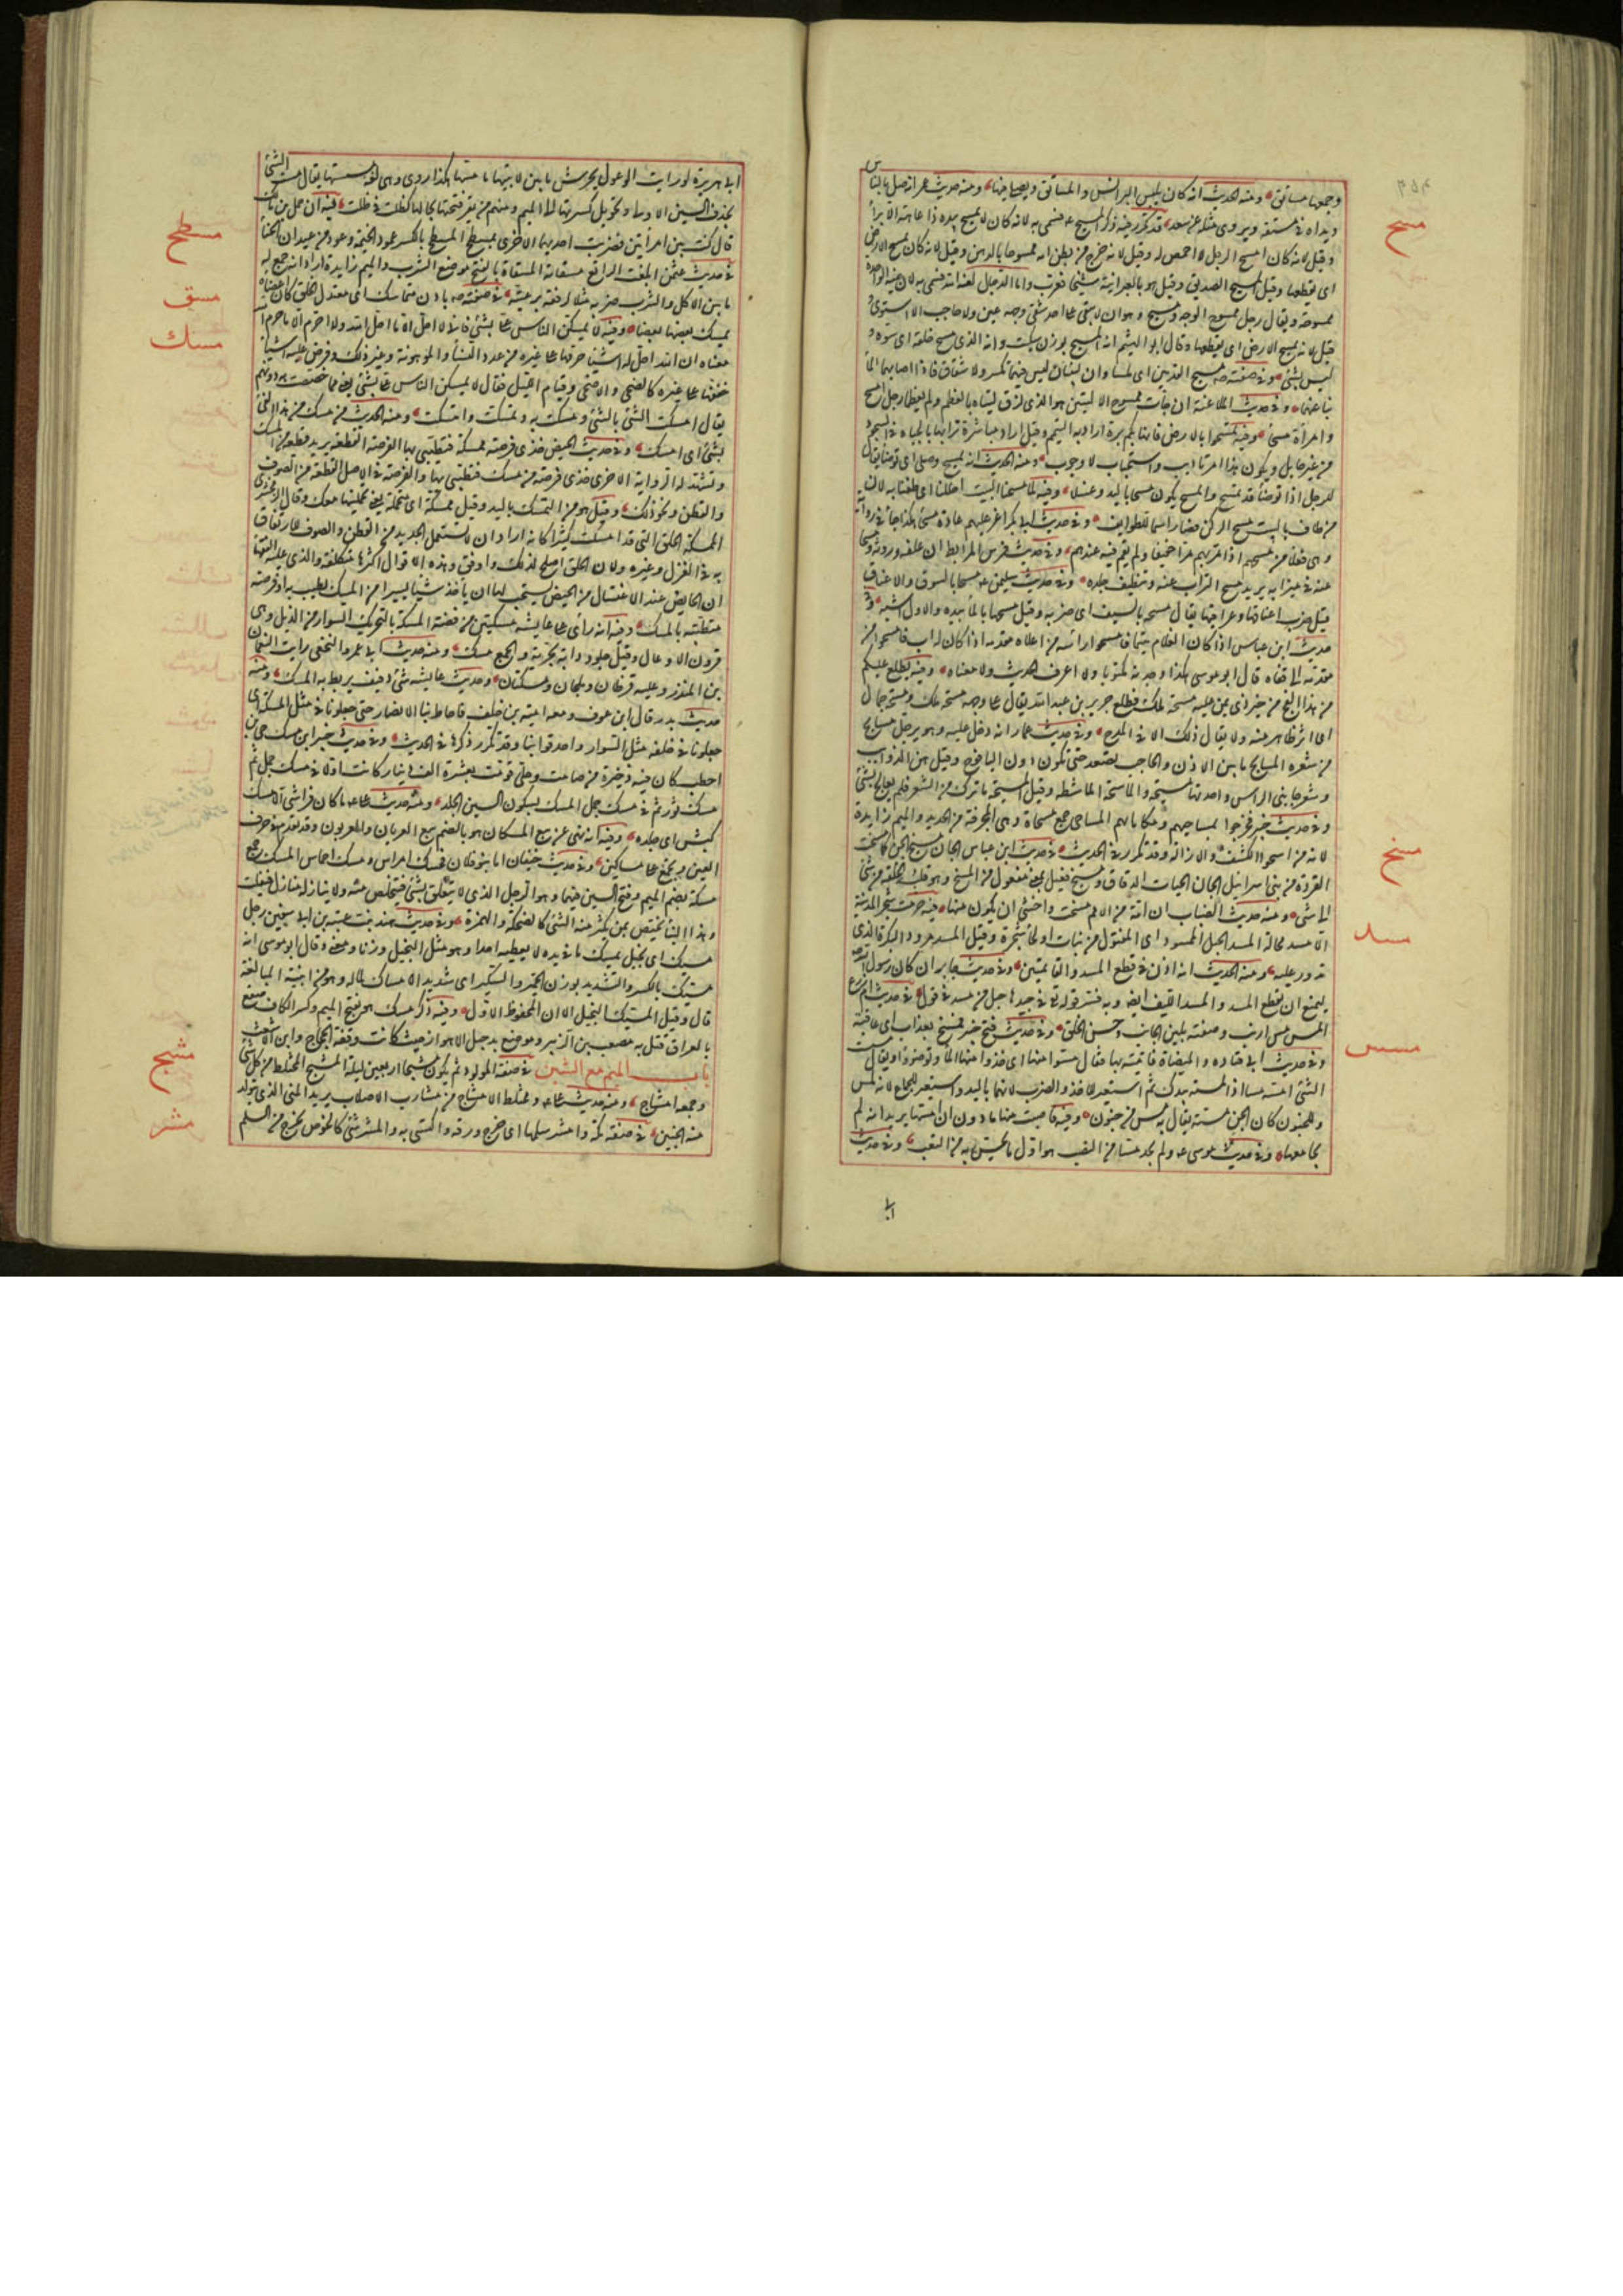 وجمعها مساتق ومنه الحديث انه كان يلبس البرانس والمساتق ويصلي فيها ومنه حديث عمر انه صلى بالناس
مسح
ويداه في مستقة ويروى مثله عن سعد قد تكرر فيه ذكر المسيح عم فسمي به لانه كان لا يمسح بيده ذا عاهة الا برأ
وقيل لانه كان امسح الرجل لا اخمص له وقيل لانه خرج من بطن امه ممسوحا بالدهن وقيل لانه كان يمسح الارض
اى يقطعها وقيل المسيح الصديق وقيل هو بالعبرانية مشيحا فعرب واما الدجال فسمي به لان عينه الواحدة
ممسوحة ويقال رجل ممسوح الوجه ومسيح وهو ان لا يبقى على احد شقي وجهه عين ولا حاجب الا استوى
قيل لانه يمسح الارض اى يقطعها وقال ابو الهيثم انه المسيح بوزن سكيت وانه الذي مسح خلقه اى شوه
ليس بشئ وفي صفته مسيح القدمين اى ملساوان لينتان ليس فيهما تكسر ولا شقاق فاذا اصابهما الماء
نبا عنهما وفي حديث الملاعنة ان جاءت به ممسوح الاليتين هو الذي لزق اليتاه بالعظم ولم يعظما رجل امسح
وامرأة مسحاء وفيه تمسحوا بالارض فانها بكم برة اراد به التيمم وقيل اراد مباشرة ترابها بالجباه في السجود
من غير حايل ويكون هذا امر تاديب واستحباب لا وجوب ومنه الحديث انه تمسح وصلى اى توضأ يقال
للرجل اذا توضأ قد تمسح والمسح يكون مسحا باليد وغسلا وفيه لما مسحنا البيت احللنا اى طفنا به لان
من طاف بالبيت مسح الركن فصار اسما للطواف وفي حديث ابي بكر اغر عليهم غارة مسحاء هكذا جاء في رواية
وهي فعلاء من مسحهم اذا مر بهم مرا خفيفا ولم يقم فيه عندهم وفي حديث فرس المرابط ان علفه وروثه ومسحا
عنه في ميزانه يريد مسح التراب عنه وتنظيف جلده وفي حديث سليمن عم مسحا بالسوق والاعناق
قيل ضرب اعناقها وعراقيبها يقال مسحه بالسيف اى ضربه وقيل مسحها بالماء بيده والاول اشبه وفي
حديث ابن عباس اذا كان الغلام يتيما فامسحوا رأسه من اعلاه الى مقدمه واذا كان له اب فامسحوا من
مقدمه الى قفاه قال ابو موسى هكذا وجدته مكتوبا ولا اعرف الحديث ولا معناه وفيه يطلع عليكم
من هذا الفج من خير ذي يمن عليه مسحة ملك فطلع جرير بن عبد الله يقال على وجهه مسحة ملك ومسحة جمال
اى اثر ظاهر منه ولا يقال ذلك الا في المدح وفي حديث عمار انه دخل عليه وهو يرجل مسايح
من شعره المسايح ما بين الاذن والحاجب يصعد حتى يكون دون اليافوخ وقيل هي الذوايب
وشعر جانبي الرأس واحدتها مسيحة والماسحة الماشطة وقيل المسيحة ما ترك من الشعر فلم يعالج بشئ
وفي حديث خيبر فخرجوا بمساحيهم ومكاتلهم المساحي جمع مسحاة وهي المجرفة من الحديد والميم زايدة
مسخ
لانه من السحو الكشف والازالة وقد تكرر في الحديث في حديث ابن عباس الجان مسيخ الجن كما مسخت
القردة من بني اسرائيل الجان الحيات الدقاق ومسيخ فعيل بمعنى مفعول من المسخ وهو قلب الخلقة من شئ
الى شئ ومنه حديث الضباب ان امة من الامم مسخت واخشى ان يكون منها فيه حرمت شجر المدينة
مسد
الا مسد محالة المسد الحبل الممسود اى المفتول من نبات او لحاء شجرة وقيل المسد مرود البكرة الذي
تدور عليه ومنه الحديث انه اذن في قطع المسد والقائمتين وفي حديث جابر ان كان رسول الله صم
ليمنع ان يقطع المسد والمسد الليف ايضا وبه فسر قوله تع في جيدها حبل من مسد في قول في حديث ام زرع
مسس
المس مس ارنب وصفته بلين الجانب وحسن الخلق وفي حديث فتح خيبر فمسه بعذاب اى عاقبه
وفي حديث ابي قتادة والميضاة فاتيته بها فقال مسوا منها اى خذوا منها الماء وتوضؤا ويقال مسست
الشئ امسه مسا اذا لمسته بيدك ثم استعير للاخذ والضرب لانهما باليد واستعير للجماع لانه لمس
وللجنون كان الجن مسته يقال به مس من جنون وفيه فاصبت منها ما دون ان امسها يريد انه لم
يجامعها وفي حديث موسى عم ولم يجد مسا من النصب هو اول ما يحس به من التعب وفي حديث
ابي هريرة لو رايت الوعول تجرش ما بين لابتيها ما مستها هكذا روي وهي لغة في مسستها يقال مست الشئ
بحذف السين الاولى وتحويل كسرتها الى الميم ومنهم من يقر فتحتها بحالها كظلت في ظللت فيه ان حمل بن مالك
مسطح
قال كنت بين امرأتين فضربت احديهما الاخرى بمسطح المسطح بالكسر عمود الخيمة وعود من عيدان الخباء
مسق
في حديث عثمن ابلغت الراتع مسقاته المسقاة بالفتح موضع الشرب والميم زايدة اراد انه جمع له
مسك
ما بين الاكل والشرب ضربه مثلا لرفقه برعيته في صفته صم بادن متماسك اى معتدل الخلق كأن اعضاءه
يمسك بعضها بعضا وفيه لا يمسكن الناس علي بشئ فاني لا احل الا ما احل الله ولا احرم الا ما حرم الله
معناه ان الله احل له اشياء حرمها على غيره من عدد النساء والموهوبة وغير ذلك وفرض عليه اشياء
خففها على غيره كالضحى والاضحى وقيام الليل فقال لا يمسكن الناس علي بشئ يعني مما خصصت به دونهم
يقال امسكت الشئ وبالشئ ومسكت به وتمسكت وامتسكت ومنه الحديث من مسك من هذا الفئ
بشئ اى امسك وفي حديث الحيض خذي فرصة ممسكة فتطيبي بها الفرصة القطعة يريد قطعة من المسك
وتشهد له الرواية الاخرى خذي فرصة من مسك فتطيبي بها والفرصة في الاصل القطعة من الصوف
والقطن ونحو ذلك وقيل هو من التمسك باليد وقيل ممسكة اى متحملة يعني تحملينها معك وقال الزمخشري
الممسكة الخلق التي قد امسكت كثيرا كانه اراد ان لا تستعمل الجديد من القطن والصوف للارتفاق
به في الغزل وغيره ولان الخلق اصلح لذلك واوفق وهذه الاقوال اكثرها متكلفة والذي عليه الفقهاء
ان الحايض عند الاغتسال من الحيض يستحب لها ان تاخذ شيئا يسيرا من المسك تطيب به او فرصة
مطيبة بالمسك وفيه انه رأى على عايشة مسكتين من فضة المسكة بالتحريك السوار من الذبل وهي
قرون الاوعال وقيل جلود دابة بحرية والجمع مسك ومنه حديث ابي عمرو النخعي رايت النعمان
بن المنذر وعليه قرطان ودملجان ومسكتان وحديث عايشة شئ ذفيف يربط به المسك ومنه
حديث بدر قال ابن عوف ومعه امية بن خلف فاحاط بنا الانصار حتى جعلونا في مثل المسكة اى
جعلونا في حلقة مثل السوار واحدقوا بنا وقد تكرر ذكرها في الحديث وفي حديث خيبر اين مسك حيي بن
اخطب كان فيه ذخيرة من صامت وحلي قومت بعشرة الف دينار كانت اولا في مسك حمل ثم
مسك ثور ثم في مسك جمل المسك بسكون السين الجلد ومنه حديث علي عم ما كان فراشي الا مسك
كبش اى جلده وفيه انه نهى عن بيع المسكان هو بالضم بيع العربان والعربون وقد تقدم في حرف
العين ويجمع على مساكين وفي حديث خيفان اما بنو فلان فحسك امراس ومسك احماس المسك جمع
مسكة بضم الميم وفتح السين فيهما وهو الرجل الذي لا يتعلق بشئ فيتخلص منه ولا ينازله منازل فيفلت
وهذا البناء يختص بمن يكثر منه الشئ كالضحكة والهمزة وفي حديث هند بنت عتبة ان ابا سفين رجل
مسيك اى بخيل يمسك ما في يديه لا يعطيه احدا وهو مثل البخيل وزنا ومعنى وقال ابو موسى انه
مسيك بالكسر والتشديد بوزن الخمير والسكير اى شديد الامساك لماله وهو من ابنية المبالغة
قال وقيل المسيك البخيل الا ان المحفوظ الاول وفيه ذكر مسك هو بفتح الميم وكسر الكاف صقع
بالعراق قتل به مصعب بن الزبير وموضع بدجيل الاهواز حيث كانت وقعة الحجاج وابن الاشعث
مشج
باب الميم مع الشين في صفة المولود ثم يكون مشيجا اربعين ليلة المشيج المختلط من كل شئ
وجمعه امشاج ومنه حديث علي عم ومحط الامشاج من مسارب الاصلاب يريد المني الذي يتولد
مشر
منه الجنين في صفة مكة وامشر سلمها اى خرج ورقه واكتسى به والمشر شئ كالخوص يخرج من السلم